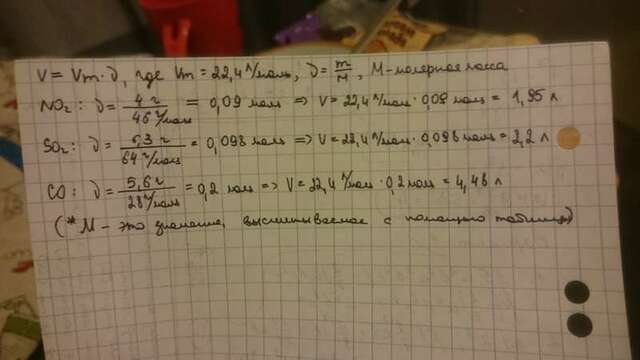 V = Vm·ν, где Vm = 22,4 л/моль, ν = m/M, M - молярная масса
NO₂: ν = 4 г / 46 г/моль = 0,09 моль => V = 22,4 л/моль · 0,09 моль = 1,95 л
SO₂: ν = 6,3 г / 64 г/моль = 0,098 моль => V = 22,4 л/моль · 0,098 моль = 2,2 л
CO: ν = 5,6 г / 28 г/моль = 0,2 моль => V = 22,4 л/моль · 0,2 моль = 4,48 л
(*M - это значение, высчитываемое с помощью таблицы)